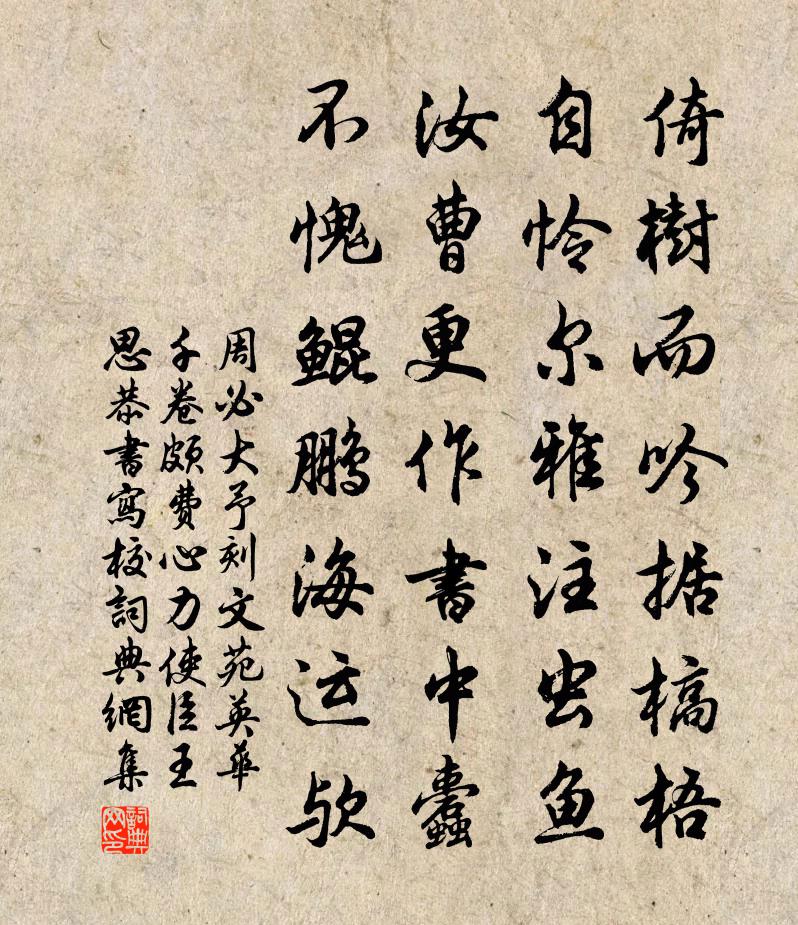 倚樹而吟据槁梧
自怜尔雅注虫鱼
汝曹更作書中蠹
不愧鲲鹏海运欤
周必大予刻文苑英華
千卷颇费心力使臣王
思恭書寫校詞典網集
詞典网印